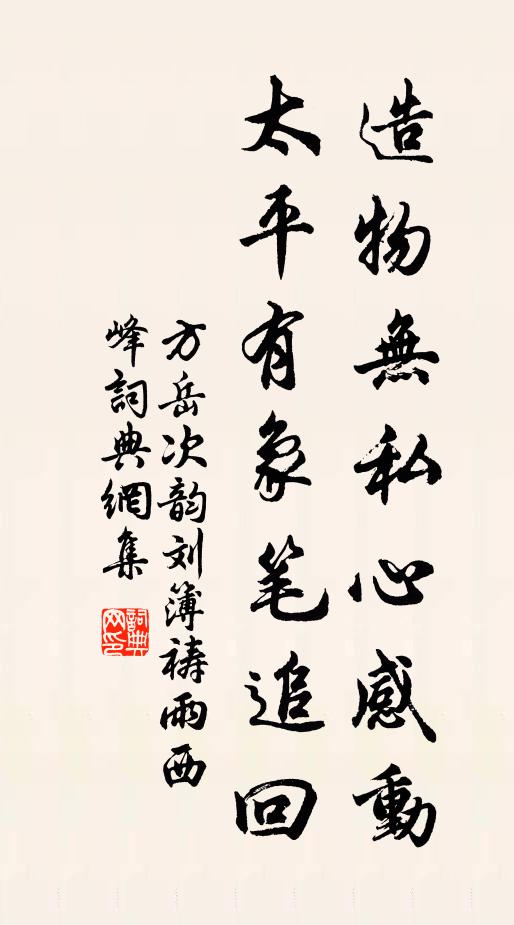 造物無私心感動
太平有象笔追回
方岳次韵刘簿祷雨西
峰詞典網集
詞典
网印